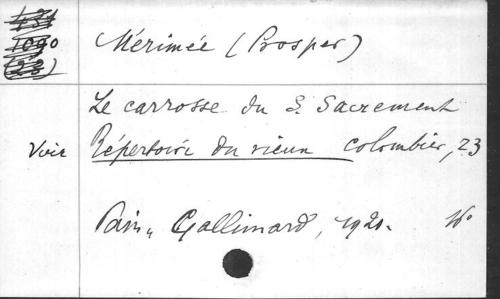 Mérimée (Prosper)
Le carrosse du S. Sacrement
Voir Répertoire du vieux colombier, 23
Paris, Gallimard, 1920. 16°